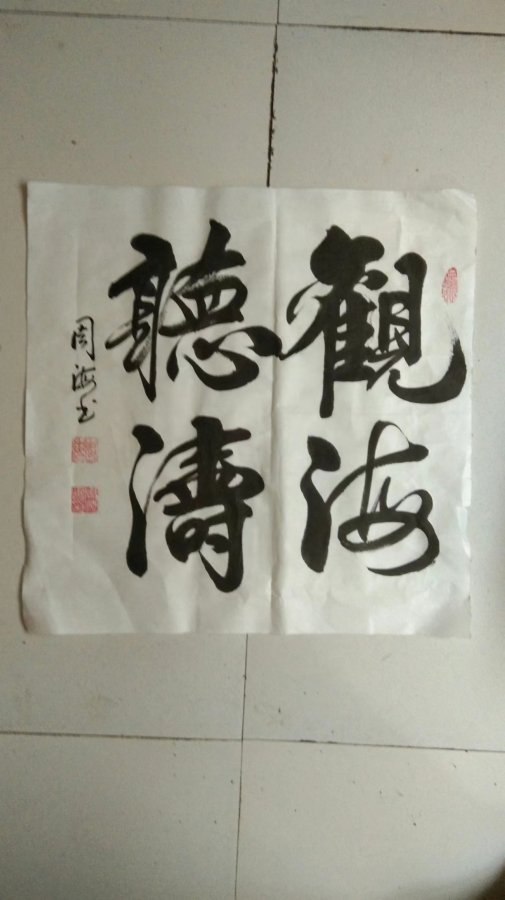 觀海
聽濤
周海书